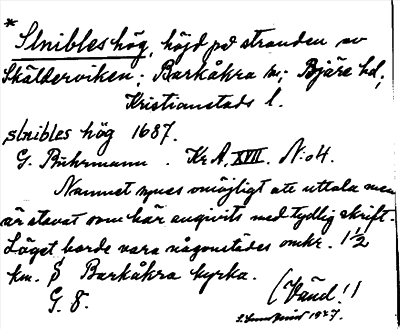 * Slnibles hög, höjd på stranden av
Skälderviken; Barkåkra sn; Bjäre hd,
Kristianstads l.
slnibles hög 1687.
G. Buhrmann. Kr A. XVII. N:o 4.
Namnet synes omöjligt att uttala men
är stavat som här angivits med tydlig skrift.
Läget borde vara någonstädes omkr. 1½
km. S Barkåkra kyrka.
G. 8. (Vänd!)
1927.